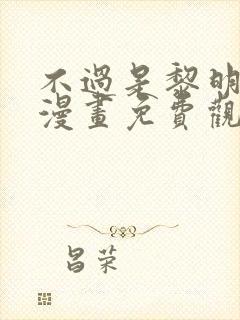 不過是黎明
漫畫免費觀
昌荣